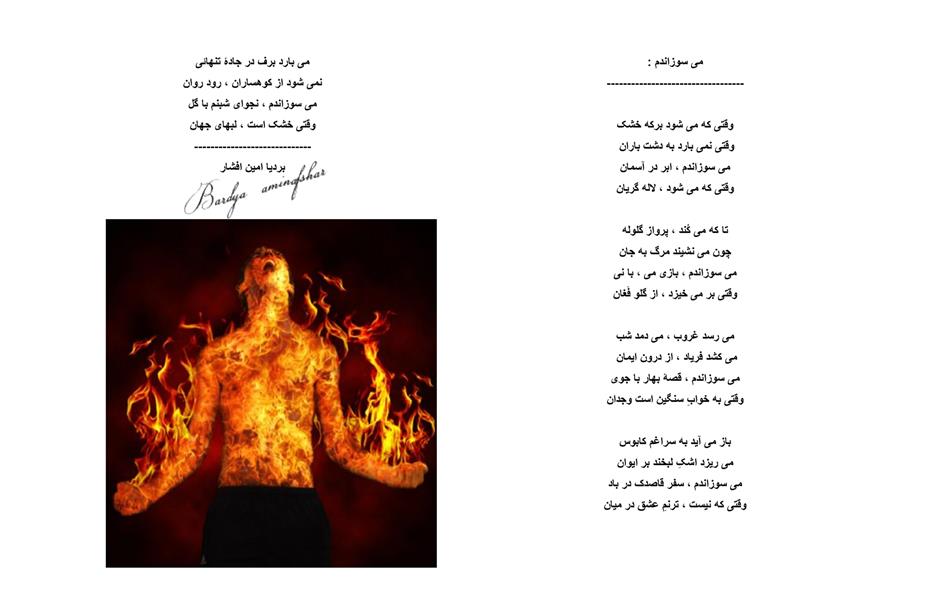 می سوزاندم :
----------------------------------
وقتی که می شود برکه خشک
وقتی نمی بارد به دشت باران
می سوزاندم ، ابر در آسمان
وقتی که می شود ، لاله گریان
تا که می کُند ، پرواز گلوله
چون می نشیند مرگ به جان
می سوزاندم ، بازی می ، با نی
وقتی بر می خیزد ، از گلو فَغان
می رسد غروب ، می دمد شب
می کشد فریاد ، از درون ایمان
می سوزاندم ، قصهٔ بهار با جوی
وقتی به خوابِ سنگین است وجدان
باز می آید به سراغم کابوس
می ریزد اشکِ لبخند بر ایوان
می سوزاندم ، سفر قاصدک در باد
وقتی که نیست ، ترنمِ عشق در میان
می بارد برف در جادهٔ تنهائی
نمی شود از کوهساران ، رود روان
می سوزاندم ، نجوای شبنم با گل
وقتی خشک است ، لبهای جهان
-----------------------------
بردیا امین افشار
Bardya aminafshar